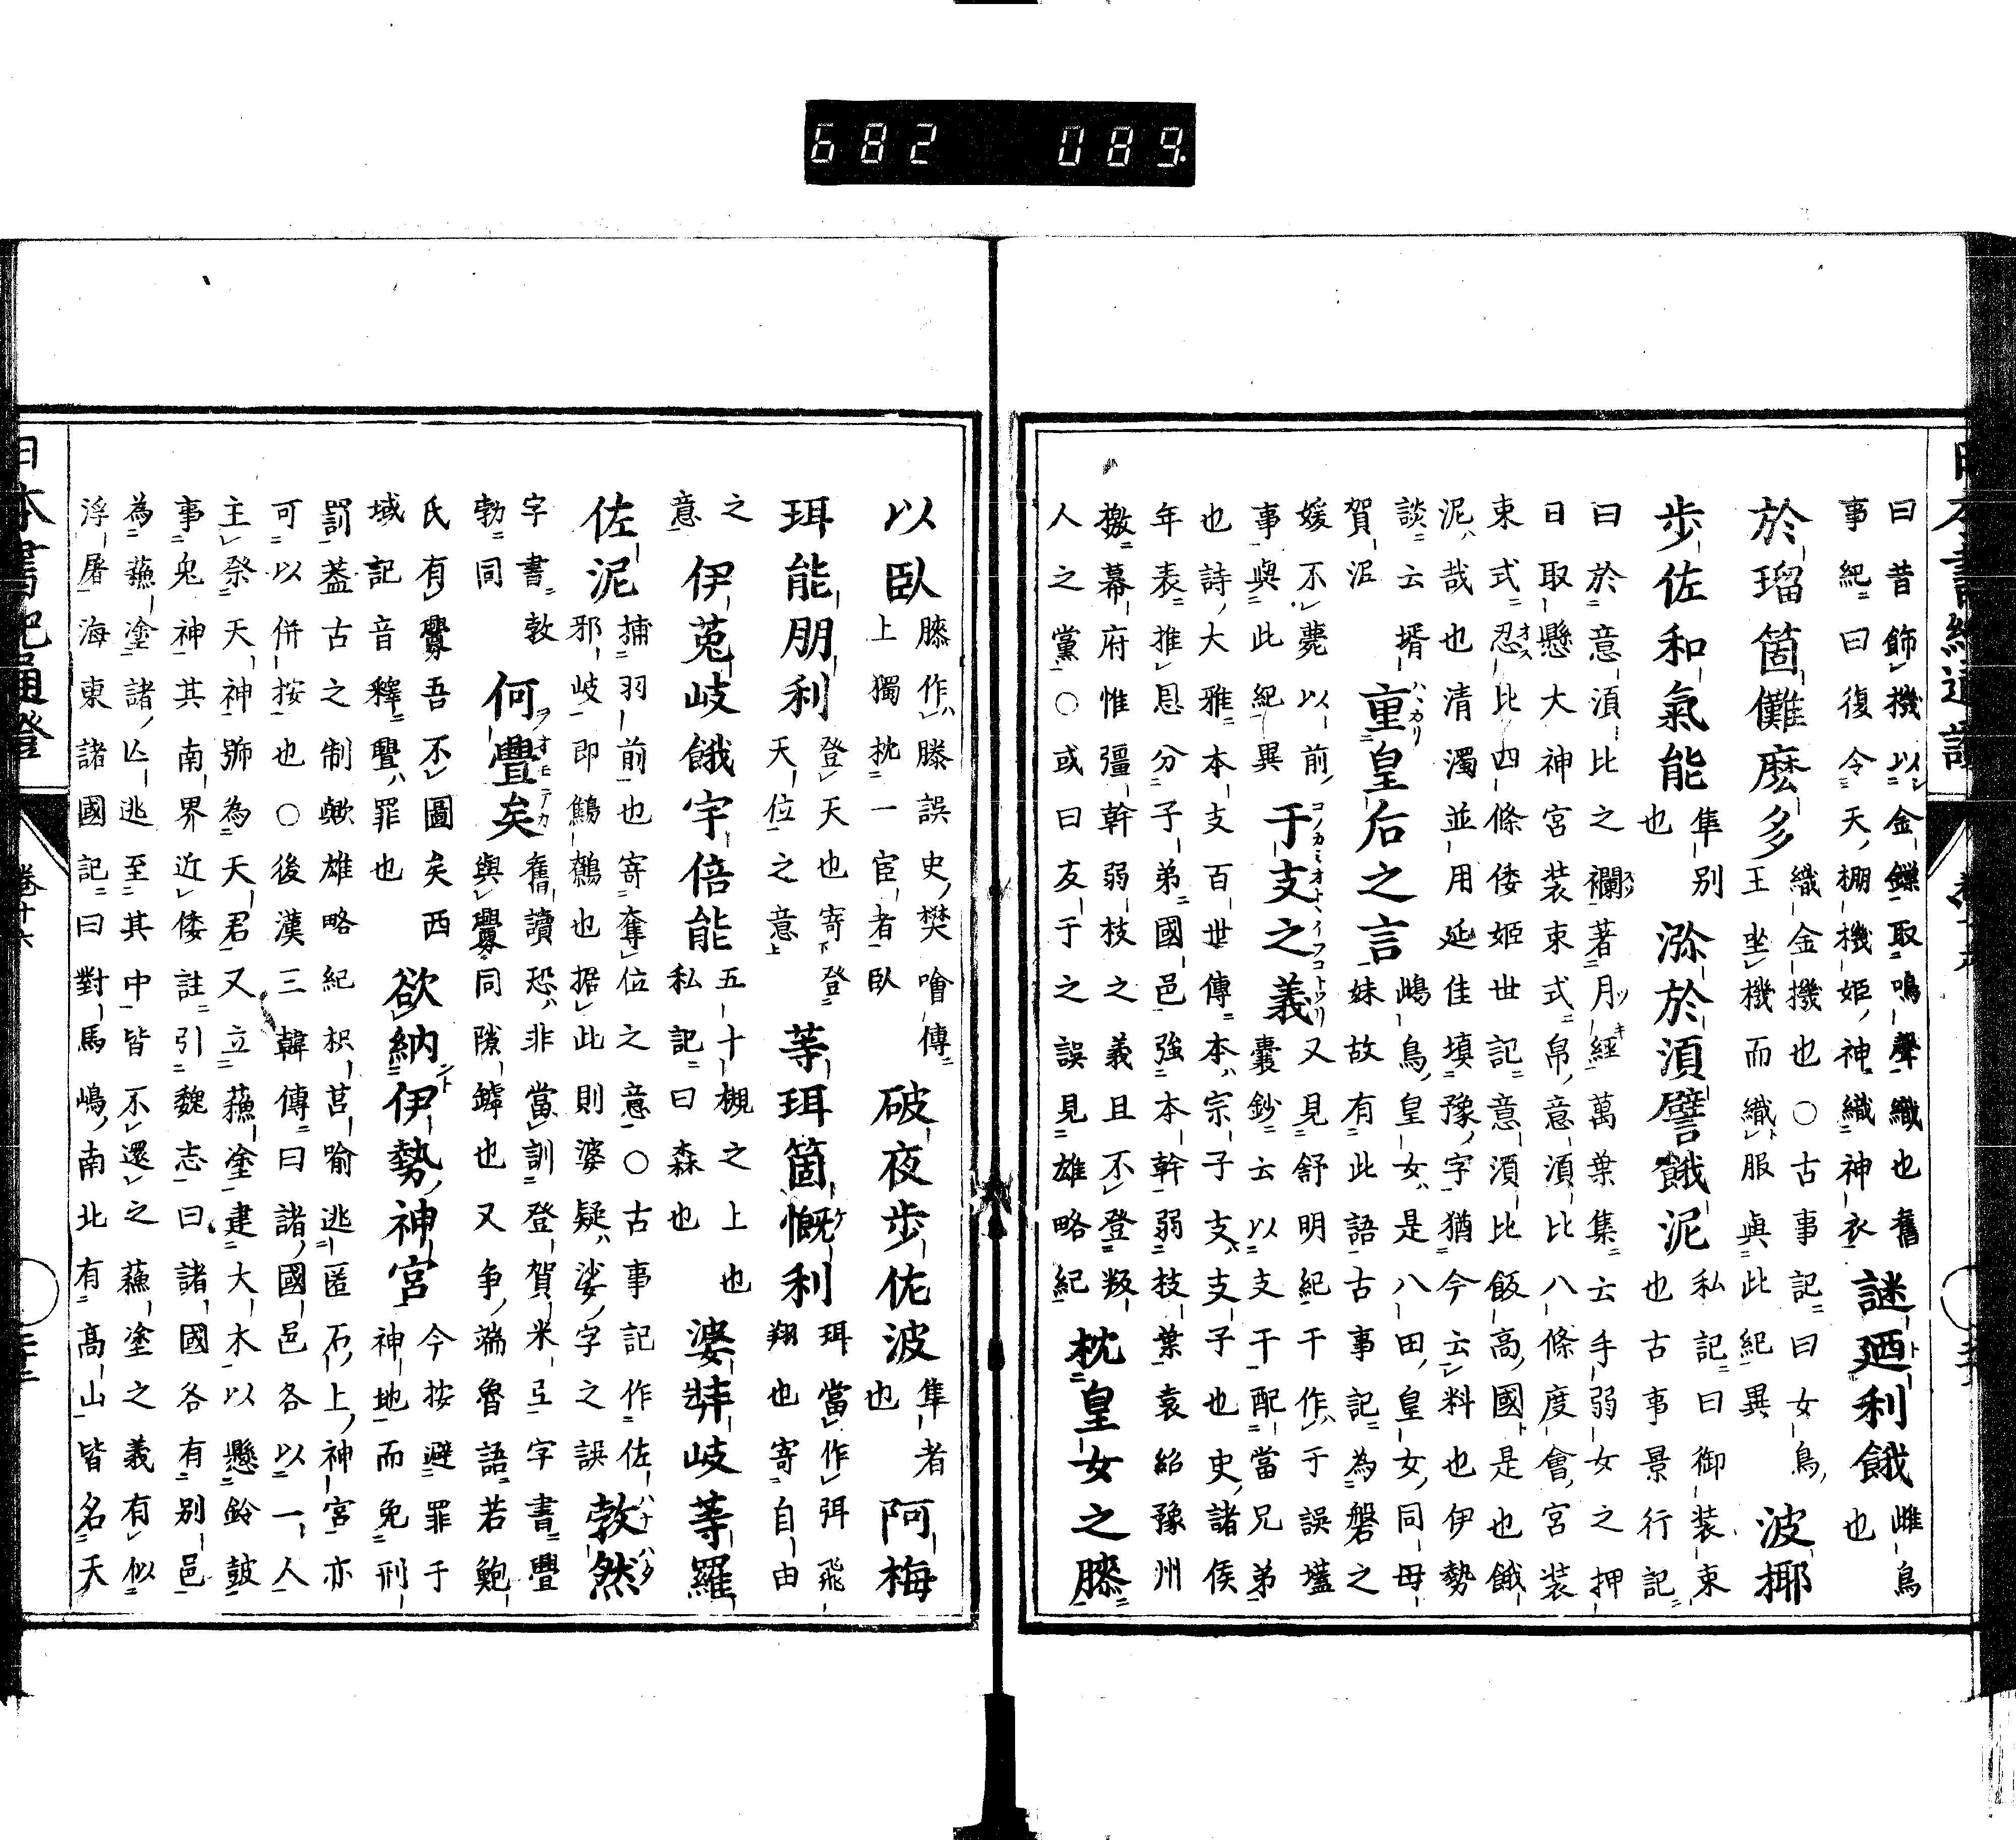 682 089
曰昔飾機以金鏁取鳴聲織也舊
事紀曰復令天棚機姫神織神衣
謎廼利餓
雌鳥
也
於瑠箇儺麽多
織金機也〇古事記曰女鳥
王坐機而織服與此紀異
波揶
步佐和氣能
隼別
也
泺於湏譬餓泥
私記曰御装束
也古事景行記
曰於意湏比之襴著月経萬葉集云手弱女之押
日取懸大神宮装束式帛意湏比八條度會宮装
束式忍比四條倭姫世記意湏比飯高國是也餓
泥哉也清濁並用延佳填豫字猶今云料也伊勢
談云壻
賀泥
重皇后之言
鴫鳥皇女是八田皇女同母
妹故有此語古事記為磐之
媛不甍以前
事與此紀異
干支之義
又見舒明紀干作于誤壒
囊鈔云以支干配當兄弟
也詩大雅本支百世傳本宗子支支子也史諸侯
年表推恩分子弟國邑強本幹弱枝葉袁紹豫州
檄幕府惟彊幹弱枝之義且不登叛
人之黨〇或曰友于之誤見雄略紀
枕皇女之膝
以臥
膝作滕誤史樊噲傳
上獨枕一宦者臥
破夜步佐波
隼者
也
阿梅
珥能朋利
登天也寄登
天位之意
等珥箇慨利
珥當作弭飛
翔也寄自由
之
意
伊菟岐餓宇倍能
五十槻之上也
私記曰森也
婆弉岐等羅
佐泥
捕羽前也寄奪位之意〇古事記作佐
邪岐即鷦鷯也据此則婆疑娑字之誤
敦然
字書敦
勃同
何舋矣
舊讀恐非當訓登賀米弖字書舋
與釁同隙罅也又争端魯語若鮑
氏有釁吾不圖矣西
域記音釋舋罪也
欲納伊勢神宮
今按避罪于
神地而免刑
罰蓋古之制歟雄略紀枳莒喻逃匿石上神宮亦
可以併按也〇後漢三韓傳曰諸國邑各以一人
主祭天神號為天君又立蘓塗建大木以懸鈴鼓
事鬼神其南界近倭註引魏志曰諸國各有別邑
為蘓塗諸亡逃至其中皆不還之蘓塗之義有似
浮屠海東諸國記曰對馬嶋南北有高山皆名天
日本書紀通證
卷十六